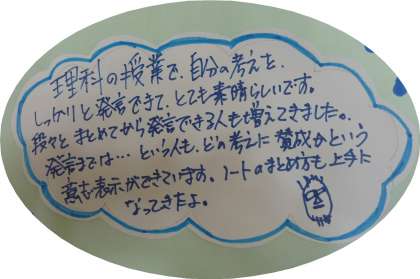 理科の授業で、自分の考えを、
しっかりと発言できて、とても素晴らしいです。
段々とまとめてから発言できる人も増えてきました。
発言までは…という人も、どの考えに賛成かという
意志表示ができています。ノートのまとめ方も上手に
なってきたよ。